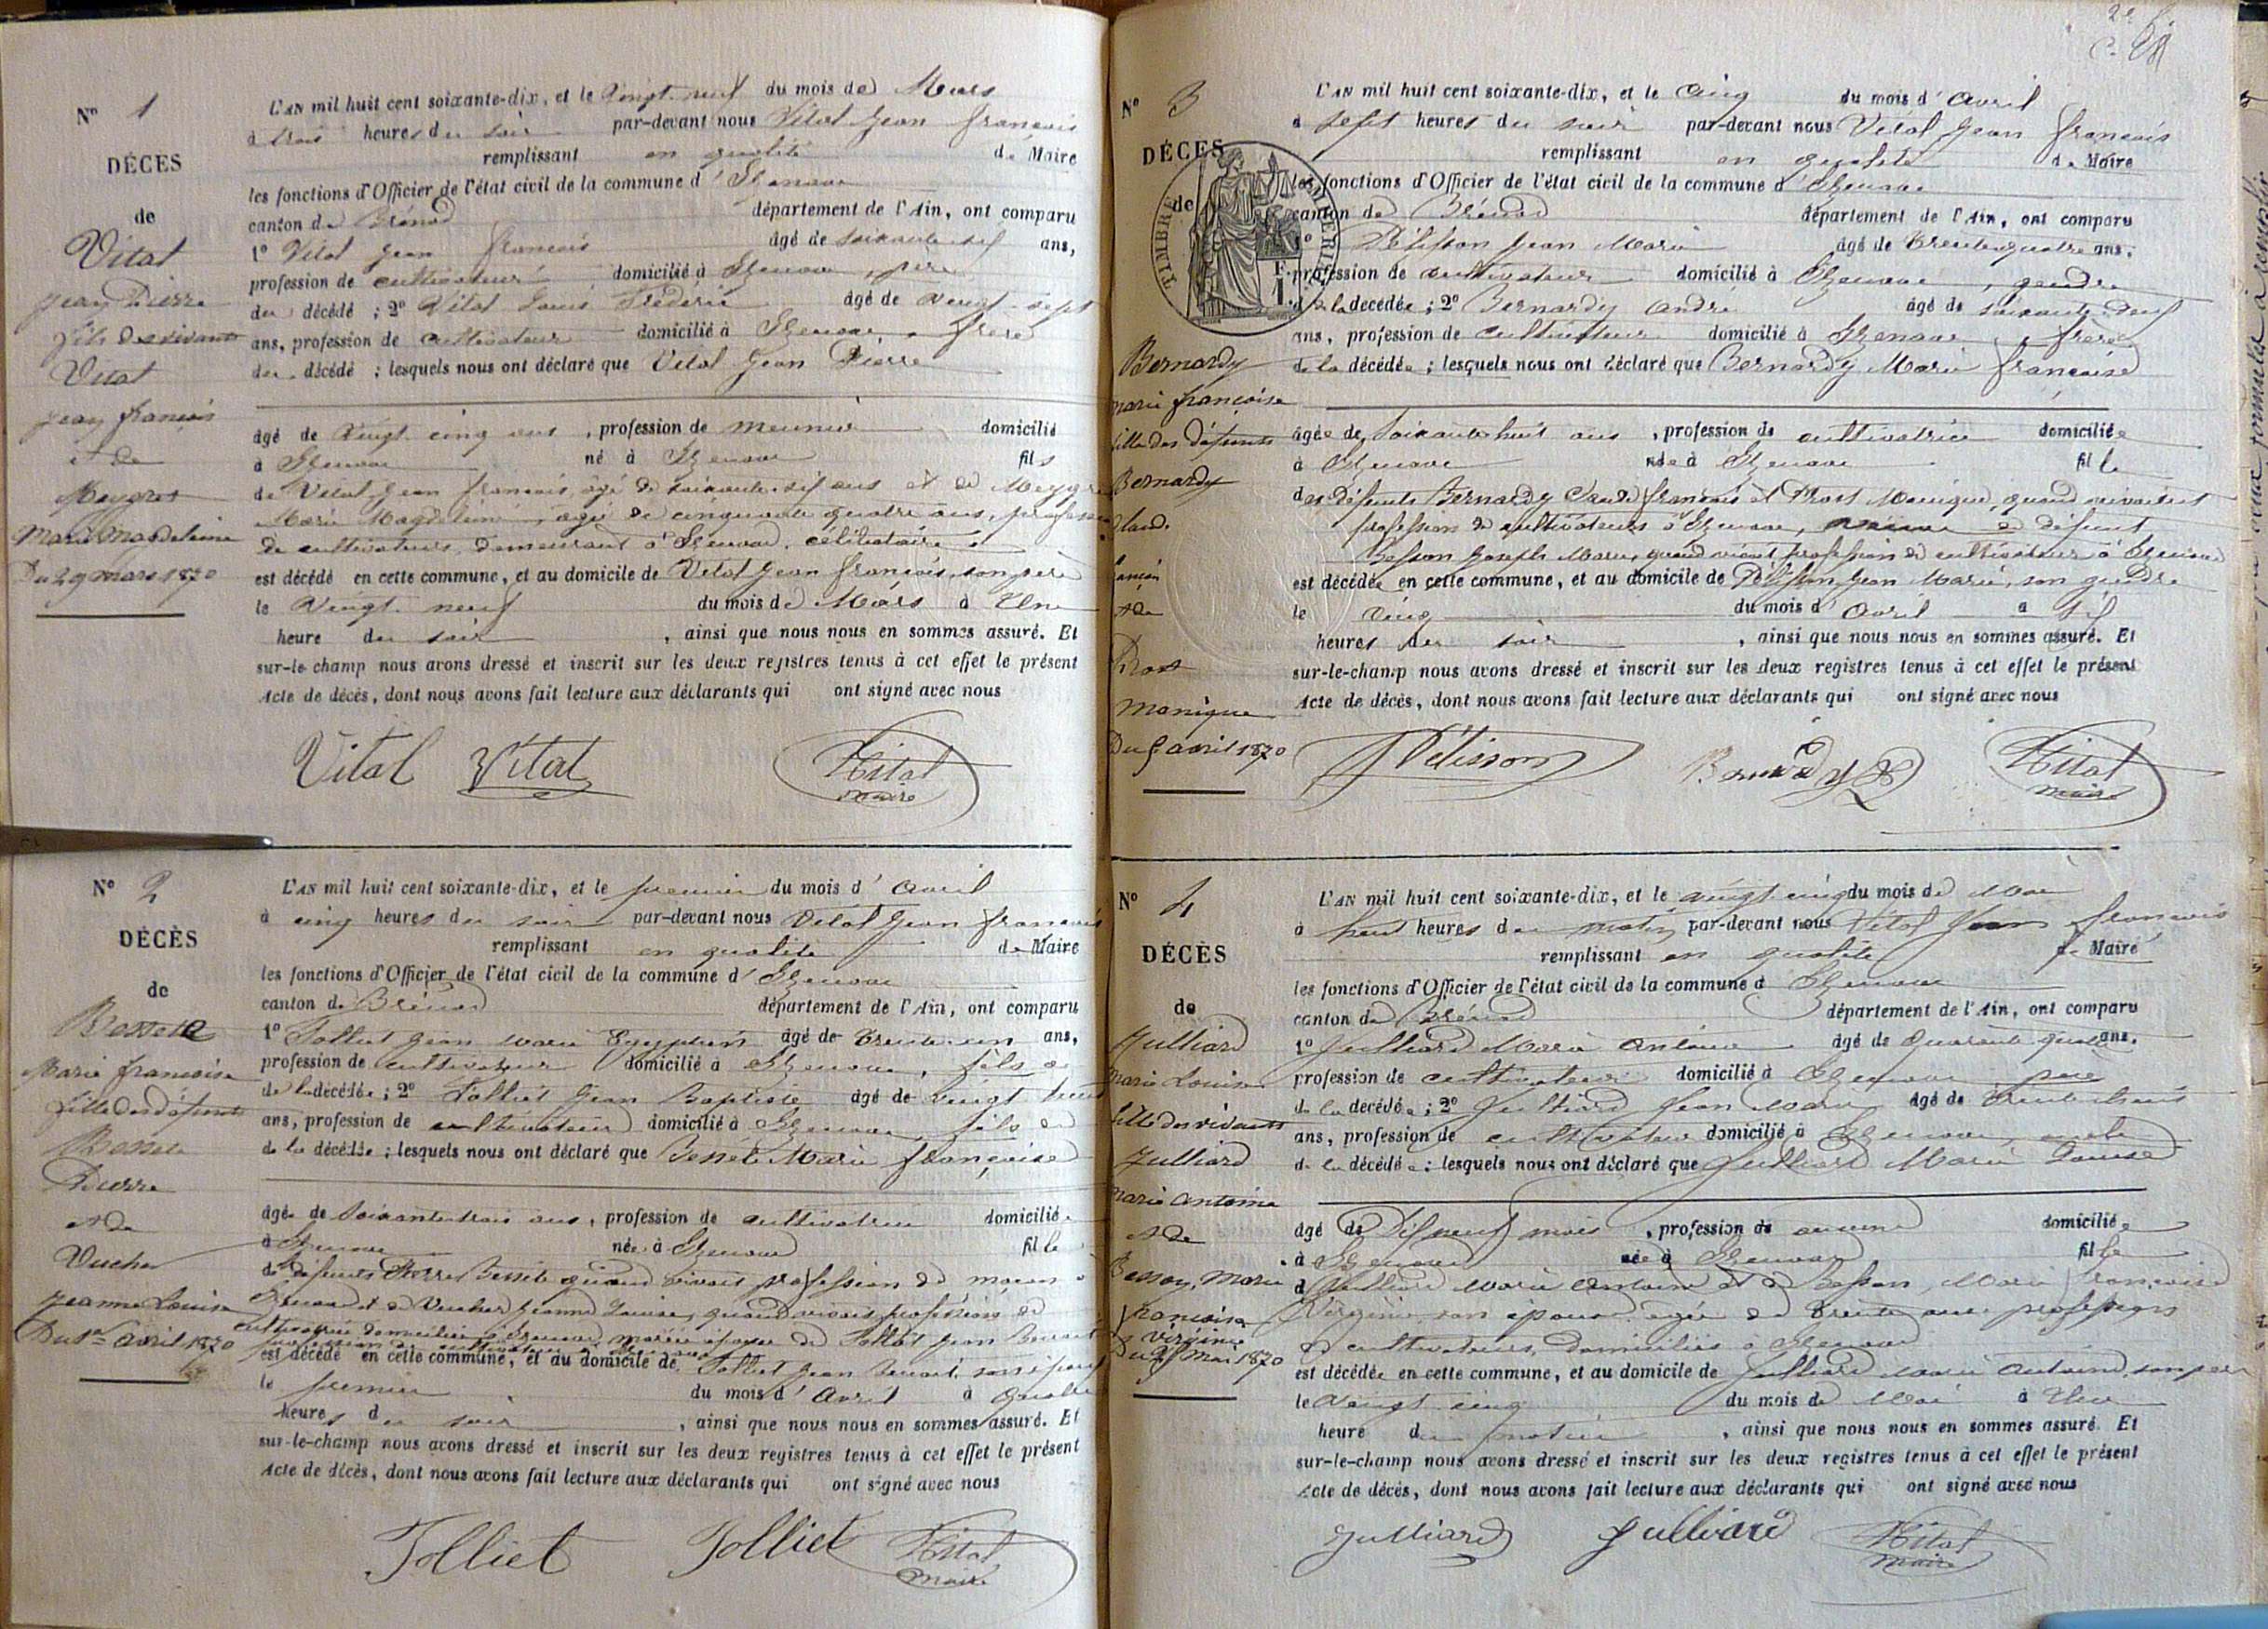 Nº 1
DÉCÈS
de
Vital
Jean Pierre
fils des vivants
Vital
Jean françois
et de
Meygret
Marie Magdeleine
Du 29 mars 1870
L'AN mil huit cent soixante-dix, et le Vingt neuf du mois de Mars
à trois heures du soir par-devant nous Vital Jean françois
remplissant en qualité de Maire
les fonctions d'Officier de l'état civil de la commune d'
canton de Brénod département de l'Ain, ont comparu
1º Vital Jean françois âgé de soixante six ans,
profession de cultivateur domicilié à père
du décédé ; 2º Vital Louis Frédéric âgé de vingt-sept
ans, profession de cultivateur domicilié à frère
du décédé ; lesquels nous ont déclaré que Vital Jean Pierre
âgé de Vingt cinq ans, profession de meunier domicilié
à né à fils
de Vital Jean françois âgé de soixante six ans et de Meygret
Marie Magdeleine, âgée de cinquante quatre ans, profession
de cultivateurs, demeurant à célibataire
est décédé en cette commune, et au domicile de Vital Jean françois, son père
le Vingt neuf du mois de Mars à Une
heure du soir, ainsi que nous nous en sommes assuré. Et
sur-le-champ nous avons dressé et inscrit sur les deux registres tenus à cet effet le présent
Acte de décès, dont nous avons fait lecture aux déclarants qui ont signé avec nous
Vital Vital Vital
maire
Nº 2
DÉCÈS
de
Bessete
Marie françoise
fille des défunts
Bessete
Pierre
et de
Vucher
Jeanne Louise
Du 1er avril 1870
L'AN mil huit cent soixante-dix, et le premier du mois d'avril
à cinq heures du soir par-devant nous Vital Jean françois
remplissant en qualité de Maire
les fonctions d'Officier de l'état civil de la commune d'
canton de Brénod département de l'Ain, ont comparu
1º Tolliet Jean Marie âgé de trente un ans,
profession de cultivateur domicilié à fils de
de la décédée ; 2º Tolliet Jean Baptiste âgé de vingt
ans, profession de cultivateur domicilié à fils de
de la décédée ; lesquels nous ont déclaré que Bessete Marie françoise
âgée de soixante trois ans, profession de cultivatrice domiciliée
à née à fille
de défunts Pierre Bessete quand vivait profession de maçon à
et de Vucher Jeanne Louise, quand vivait profession de
cultivatrice domiciliée à épouse de Tolliet Jean
est décédé en cette commune, et au domicile de Tolliet Jean son époux
le premier du mois d'avril à quatre
heures du soir, ainsi que nous nous en sommes assuré. Et
sur-le-champ nous avons dressé et inscrit sur les deux registres tenus à cet effet le présent
Acte de décès, dont nous avons fait lecture aux déclarants qui ont signé avec nous
Tolliet Tolliet Vital
maire
Nº 3
DÉCES
de
TIMBRE IMPERIAL
Bernardy
marie françoise
fille des défunts
Bernardy
et de
Prost
Manique
Du 5 avril 1870
L'AN mil huit cent soixante-dix, et le cinq du mois d'avril
à sept heures du soir par-devant nous Vital Jean françois
remplissant en qualité de Maire
les fonctions d'Officier de l'état civil de la commune d'
canton de Brénod département de l'Ain, ont comparu
1º Pélisson Jean Marie âgé de trente quatre ans,
profession de cultivateur domicilié à gendre
de la décédée ; 2º Bernardy André âgé de soixante
ans, profession de cultivateur domicilié à frère
de la décédée ; lesquels nous ont déclaré que Bernardy Marie françoise
âgée de soixante huit ans, profession de cultivatrice domiciliée
à née à fille
des défunts Bernardy Claude françois et Prost Manique, quand vivaient
profession de cultivateurs à veuve de défunt
Besson Joseph Marie, quand vivait profession de cultivateur à
est décédée en cette commune, et au domicile de Pélisson Jean Marie, son gendre
le cinq du mois d'avril à six
heures du soir, ainsi que nous nous en sommes assuré. Et
sur-le-champ nous avons dressé et inscrit sur les deux registres tenus à cet effet le présent
Acte de décès, dont nous avons fait lecture aux déclarants qui ont signé avec nous
Pélisson Bernardy Vital
maire
Nº 4
DÉCÈS
de
Julliard
Marie Louise
fille des vivants
Julliard
Marie antoine
et de
Besson, Marie
françoise
Virginie
Du 25 mai 1870
L'AN mil huit cent soixante-dix, et le vingt cinq du mois de Mai
à huit heures du matin par-devant nous Vital Jean françois
remplissant en qualité de Maire
les fonctions d'Officier de l'état civil de la commune d'
canton de Brénod département de l'Ain, ont comparu
1º Julliard Marie Antoine âgé de quarante quatre ans,
profession de cultivateur domicilié à père
de la décédée ; 2º Julliard Jean Marie âgé de trente huit
ans, profession de cultivateur domicilié à oncle
de la décédée ; lesquels nous ont déclaré que Julliard Marie Louise
âgé de Dix neuf mois, profession de aucune domiciliée
à née à fille
de Julliard Marie Antoine et de Besson, Marie françoise
Virginie, son épouse âgée de trente ans profession
de cultivateurs, domiciliés à
est décédée en cette commune, et au domicile de Julliard Marie Antoine, son père
le vingt cinq du mois de Mai à Une
heure du matin, ainsi que nous nous en sommes assuré. Et
sur-le-champ nous avons dressé et inscrit sur les deux registres tenus à cet effet le présent
Acte de décès, dont nous avons fait lecture aux déclarants qui ont signé avec nous
Julliard Julliard Vital
maire